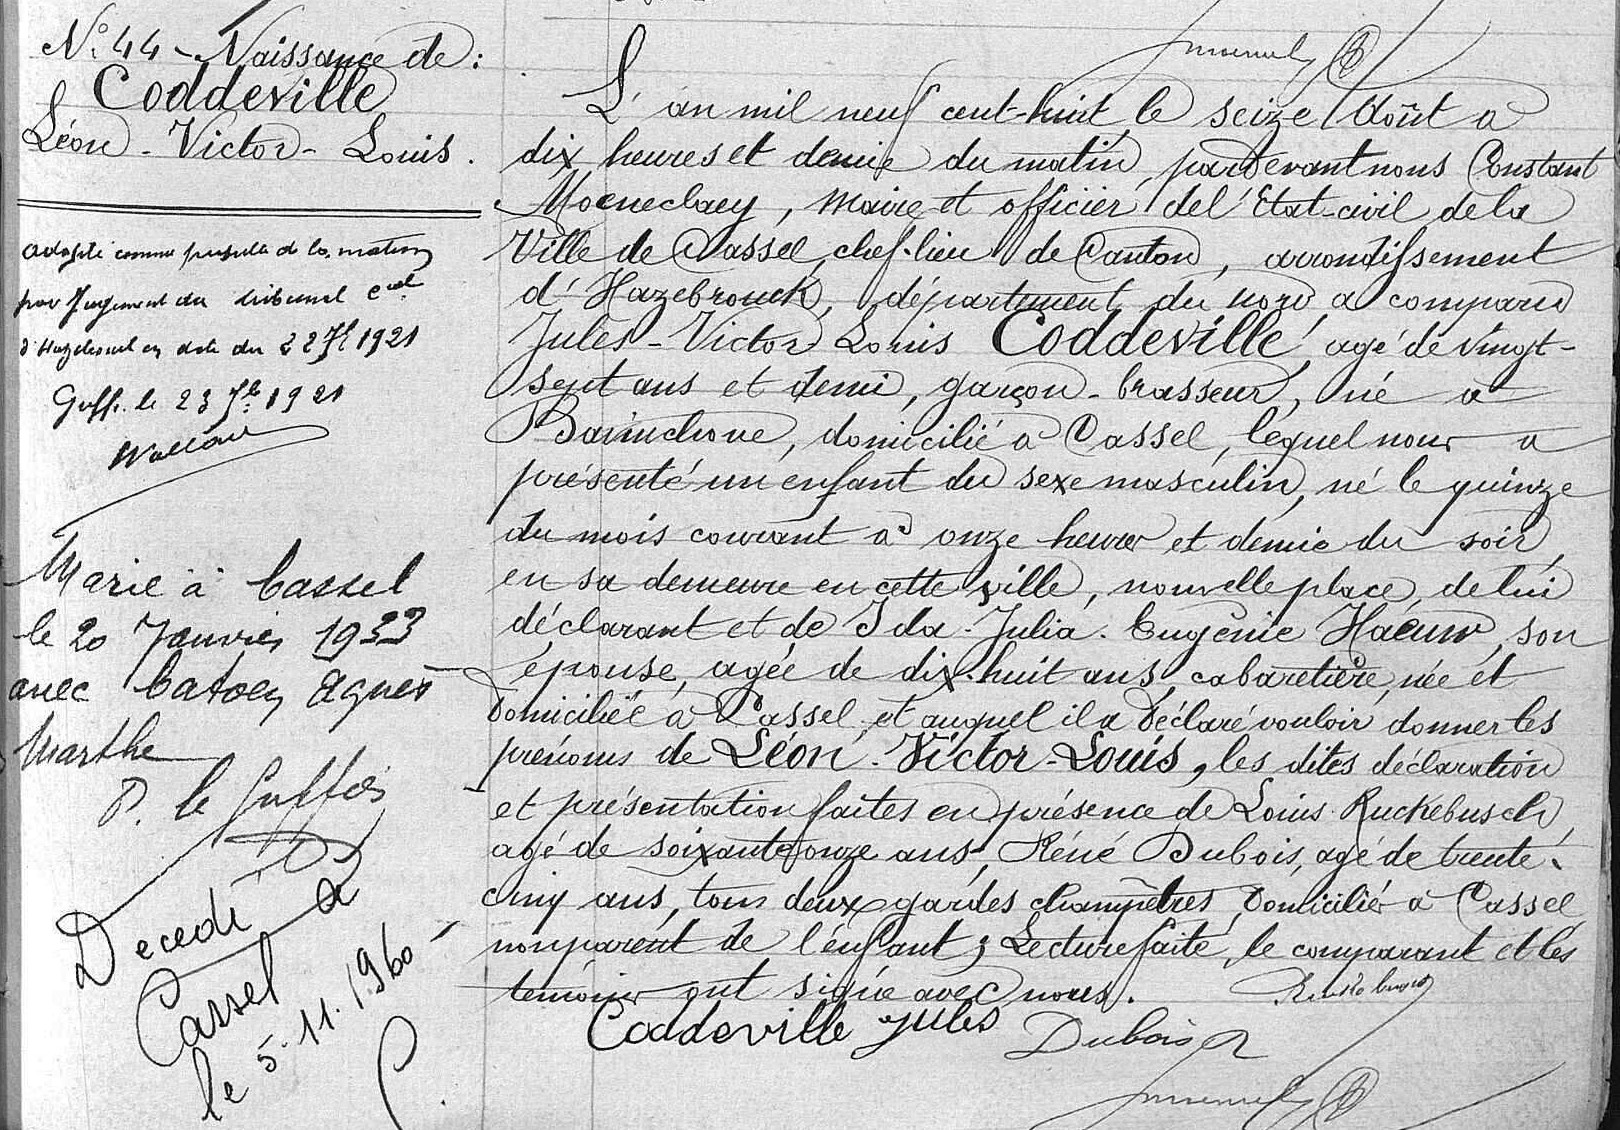 N° 44 - Naissance de :
Coddeville
Léon - Victor - Louis.
adopté comme pupille de la nation
par Jugement du tribunal civil
d'Hazebrouck en date du 22 7bre 1921
Greff. le 23 7bre 1921
Marié à Cassel
le 20 Janvier 1933
avec Catoen Agnès
Marthe
P. le Greffier
Décédé à
Cassel
le 5.11.1960
L'an mil neuf cent-huit le seize Août à
dix heures et demie du matin, pardevant nous Constant
Moeneclaey, Maire et officier de l'Etat-civil de la
Ville de Cassel, chef-lieu de Canton, arrondissement
d'Hazebrouck, département du nord a comparu
Jules - Victor Louis Coddeville agé de vingt-
sept ans et demi, garçon-brasseur, né à
Bavinchove, domicilié à Cassel, lequel nous a
présenté un enfant du sexe masculin, né le quinze
du mois courant à onze heures et demie du soir,
en sa demeure en cette ville, nouvelle place, de lui
déclarant et de Ida - Julia - Eugénie Haeuw, son
épouse, agée de dix-huit ans, cabaretière, née et
domiciliée à Cassel, et auquel il a déclaré vouloir donner les
prénoms de Léon - Victor - Louis, les dites déclaration
et présentation faites en présence de Louis Ruckebusch,
agé de soixante onze ans, Réné Dubois, agé de trente-
cinq ans, tous deux gardes champêtres, domiciliés à Cassel,
non parent de l'enfant ; Lecture faite, le comparant et les
témoins ont signé avec nous.
Coddeville Jules
Dubois R